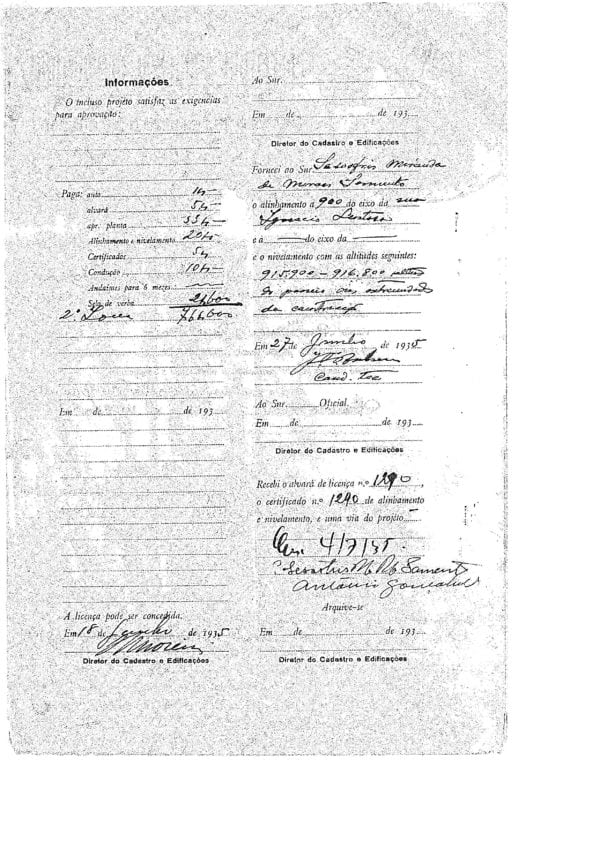 Informações
O incluso projeto satisfaz as exigencias
para aprovação:
Paga: auto 1$
alvará 5$
apr. planta 35$
Alinhamento e nivelamento 20$
Certificados 5$
Condução 10$
Andaimes para 6 mezes:
Selo de verba
2ª
Em de de 193
A licença pode ser concedida.
Em 18 de Junho de 1935
Diretor do Cadastro e Edificações
Ao Snr.
Em de de 193
Diretor do Cadastro e Edificações
Forneci ao Snr. Miranda
de Moraes Sarmento
o alinhamento a 900 do eixo da rua
Ignacio
e a do eixo da
e o nivelamento com as altitudes seguintes:
915.900 – 916.800
extremidades
da construção
Em 27 de Junho de 1935
Cand. Tec
Ao Snr. Oficial.
Em de de 193
Diretor do Cadastro e Edificações
Recebi o alvará de licença n.º 1290,
o certificado n.º 1290 de alinhamento
e nivelamento, e uma via do projéto
Em 4/7/35.
Antonio Gonçalves
Arquive-se
Em de de 193
Diretor do Cadastro e Edificações